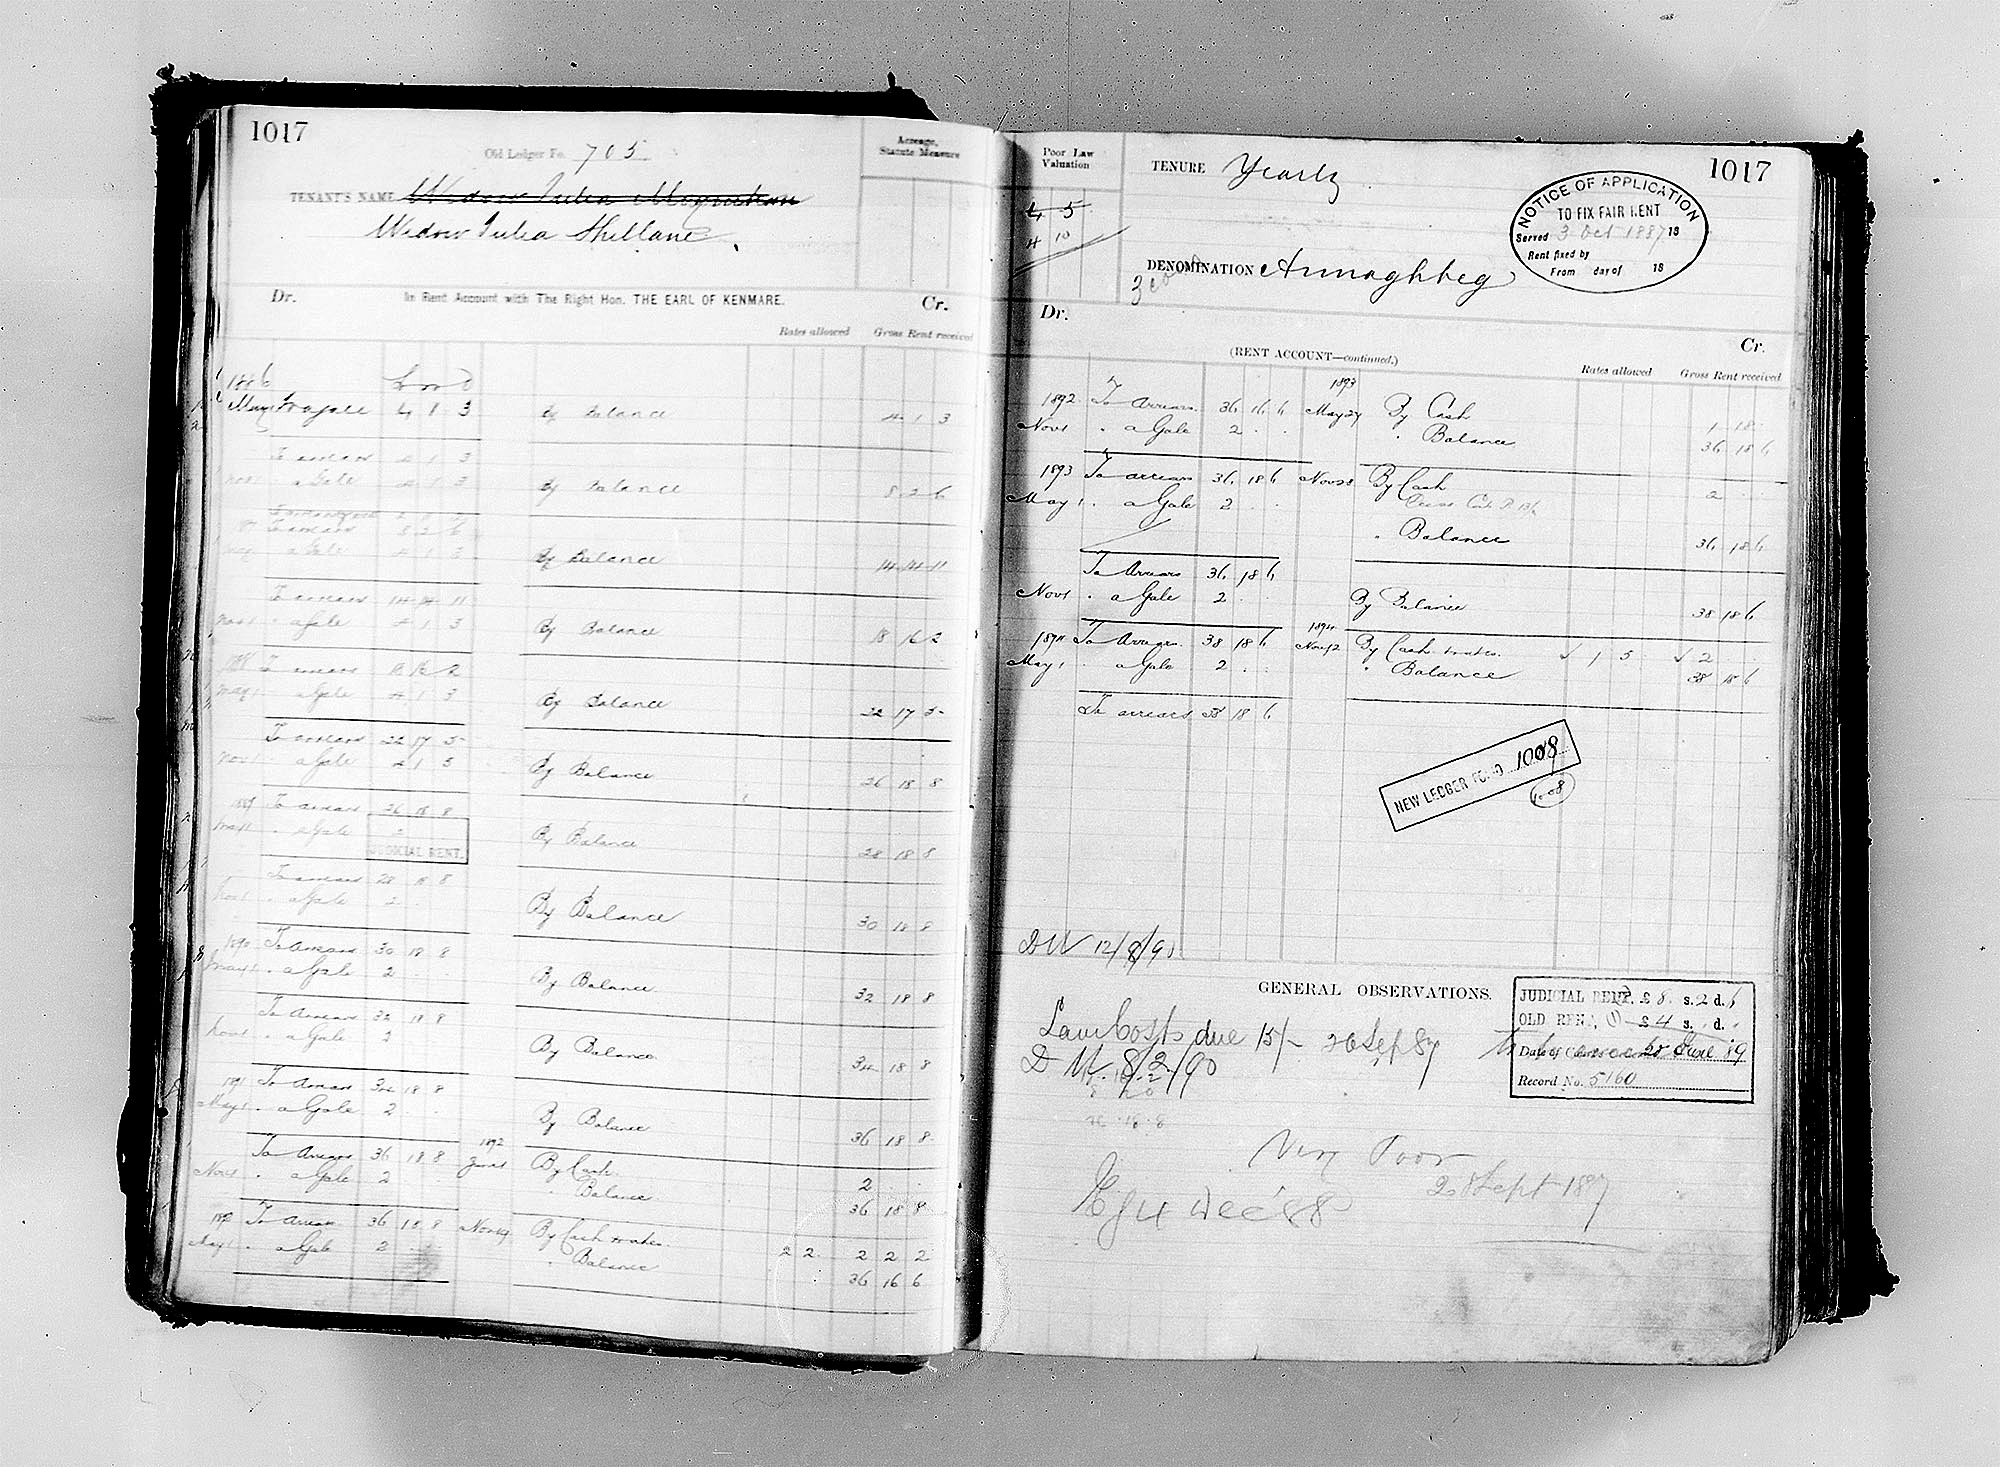 1017
Old Ledger Fo. 705
Acreage, Statute Measure
TENANT'S NAME Widow Julia
Widow Julia Shillane
Dr. In Rent Account with The Right Hon. THE EARL OF KENMARE. Cr.
Rates allowed Gross Rent received
1886
May a gale 4 1 3 By Balance 4 1 3
To arrears 4 1 3
Nov 1 a Gale 4 1 3 By Balance 8 2 6
To arrears 8 2 6
May a Gale 4 1 3 By Balance 14 14 11
To arrears 14 14 11
Nov 1 a gale 4 1 3 By Balance 18 16 2
1888 To arrears 18 16 2
May 1 a Gale 4 1 3 By Balance 22 17 5
To arrears 22 17 5
Nov 1 a Gale 4 1 3 By Balance 26 18 8
1889 To arrears 26 18 8
May 1 . a Gale 2 By Balance 28 18 8
JUDICIAL RENT.
To arrears 28 18 8
Nov 1 . a Gale 2 By Balance 30 18 8
1890 To Arrears 30 18 8
May 1 . a Gale 2 By Balance 32 18 8
To Arrears 32 18 8
Nov 1 . a Gale 2 By Balance 34 18 8
1891 To Arrears 34 18 8
May 1 . a Gale 2 By Balance 36 18 8
To Arrears 36 18 8 1892 By Cash 2
Nov 1 . a Gale 2 " Balance 36 18 8
1892 To Arrears 36 18 8 Nov 19 By Cash & rates 2 2 2 2 2
May 1 . a Gale 2 " Balance 36 16 6
1017
Poor Law Valuation
4 5
4 10
TENURE Yearly
NOTICE OF APPLICATION
TO FIX FAIR RENT
Served 3 Oct 1887 18
Rent fixed by
From day of 18
DENOMINATION Annaghbeg
Dr. Cr.
(RENT ACCOUNT—continued.)
Rates allowed Gross Rent received
1892 To Arrears 36 16 6 1893 May 27 By Cash 1 18
Nov 1 " a Gale 2 " Balance 36 18 6
1893 To arrears 36 18 6 Nov 28 By Cash 2
May 1 . a Gale 2
" Balance 36 18 6
To Arrears 36 18 6
Nov 1 . a Gale 2 By Balance 38 18 6
1894 To Arrears 38 18 6 1894 Nov 12 By Cash & rates 1 5 2
May 1 . a Gale 2 " Balance 38 18 6
To arrears 38 18 6
NEW LEDGER FOLIO 1008
1008
DW 12/8/90
GENERAL OBSERVATIONS.
JUDICIAL RENT. £ 8 s. 2 d. 6
OLD RENT, £ 4 s. d.
Law Costs due 15/- 20 Sep 87
Date of June 89
D W. 8/2/90
Record No. 5160
Very Poor
20 Sept 1887
Dec '88